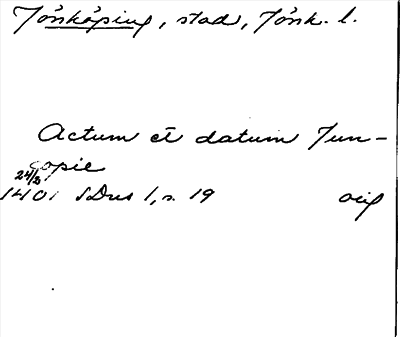 Jönköping, stad, Jönk. l.
Actum et datum Jun-
copie
24/2
1401 SDns 1, s. 19 orig